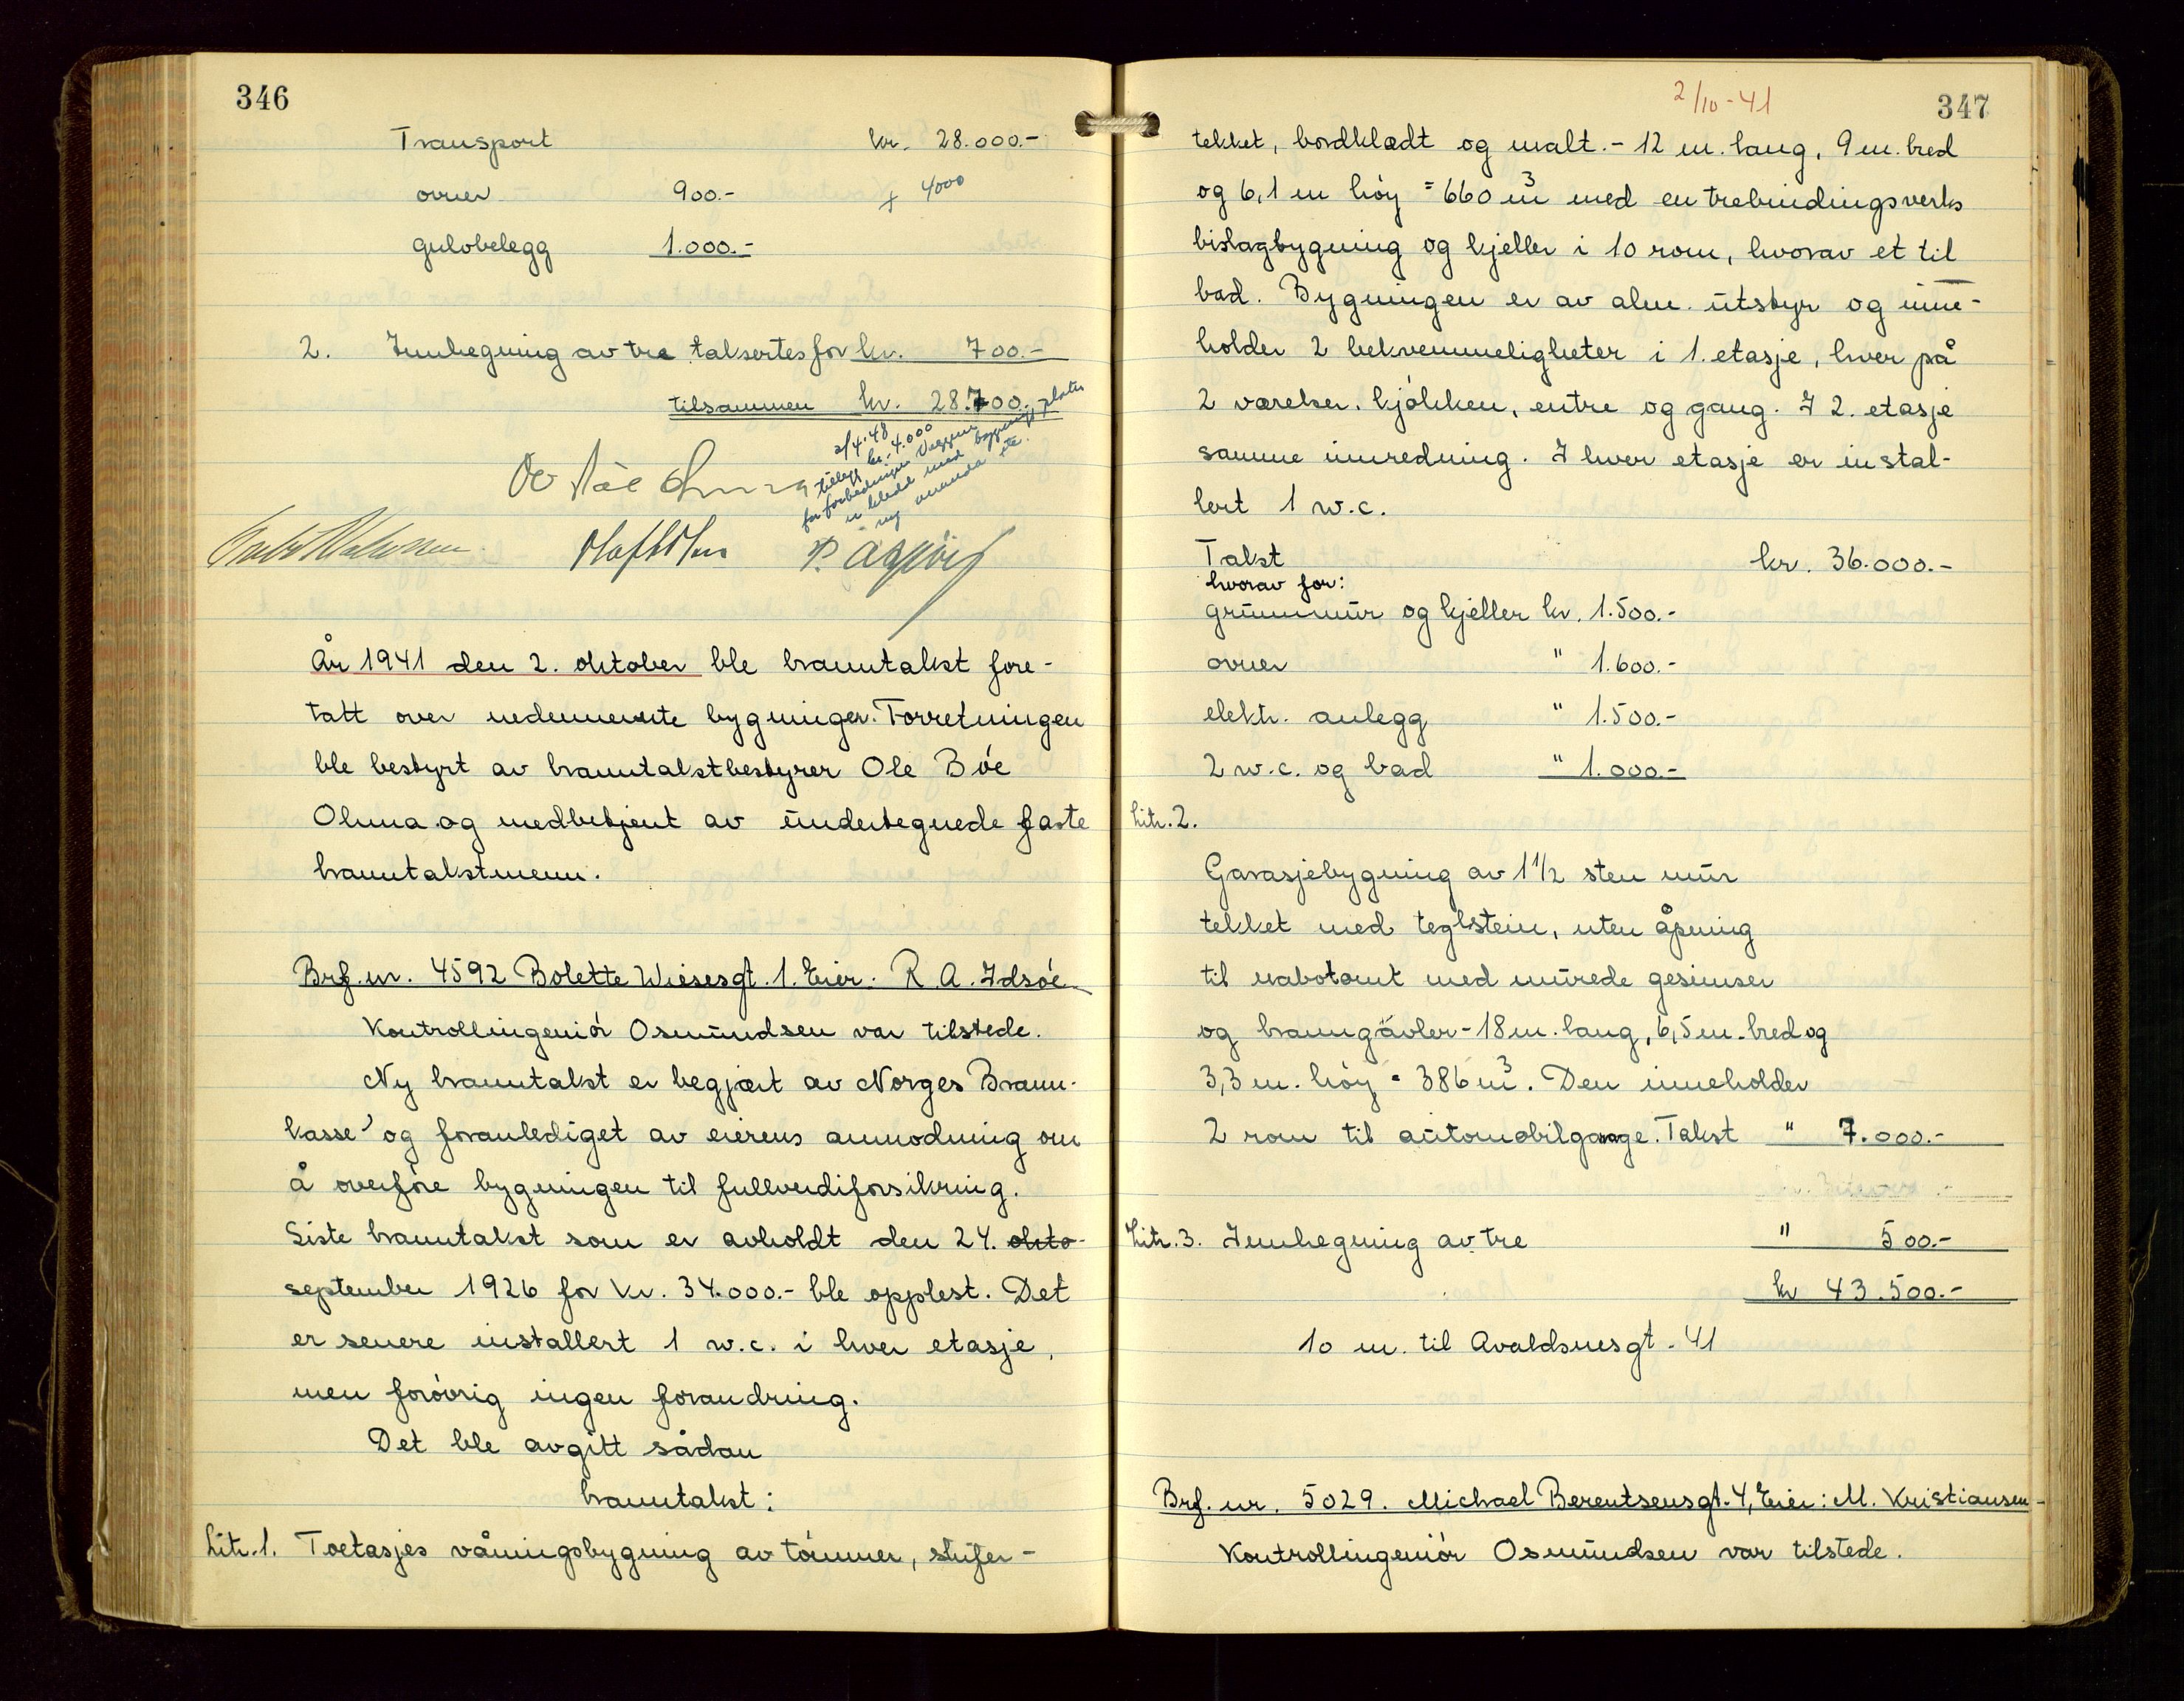 346
Transport kr. 28.000.-
ovner 900.- + 4000
gulvbelegg 1.000.-
2. Innhegning av tre taksertes for kr. 700.-
tilsammen kr. 28.700.-
2/4.'48
tillegg kr. 4.000
for forbedringer Veggene
er kledd med bygningsplater
ny veranda etc.
År 1941 den 2. oktober ble branntakst fore-
tatt over nedennevnte bygninger. Forretningen
ble bestyrt av branntakstbestyrer Ole Bøe
Ohma og medbetjent av undertegnede faste
branntakstmenn.
Brf. nr. 4592 Bolette Wiesesgt. 1. Eier: R. A. Idsøe
Kontrollingeniør Osmundsen var tilstede.
Ny branntakst er begjært av Norges Brann-
kasse og foranlediget av eierens anmodning om
å overføre bygningen til fullverdiforsikring.
Siste branntakst som er avholdt den 24. okto-
september 1926 for kr. 34.000.- ble opplest. Det
er senere installert 1 w.c. i hver etasje,
men forøvrig ingen forandring.
Det ble avgitt sådan
branntakst:
Litr. 1. Toetasjes våningsbygning av tømmer, skifer-
2/10-41
347
tekket, bordklædt og malt. - 12 m. lang, 9 m. bred
og 6,1 m høy = 660 m³ med en trebindingsverks
bislagbygning og kjeller i 10 rom, hvorav et til
bad. Bygningen er av alm. utstyr og inne-
holder 2 bekvemmeligheter i 1. etasje, hver på
2 værelser, kjøkken, entre og gang. I 2. etasje
samme innredning. I hver etasje er instal-
lert 1 w.c.
Takst kr. 36.000.-
hvorav for:
grunnmur og kjeller kr. 1.500.-
ovner " 1.600.-
elektr. anlegg " 1.500.-
2 w.c. og bad " 1.000.-
Litr. 2.
Garasjebygning av 1 1/2 sten mur
tekket med teglstein, uten åpning
til nabotomt med murede gesimser
og branngavler - 18 m. lang, 6,5 m. bred og
3,3 m. høy = 386 m³. Den inneholder
2 rom til automobilgarage. Takst " 7.000.-
Litr. 3. Innhegning av tre " 500.-
kr 43.500.-
10 m. til Avaldsnesgt. 41
Brf. nr. 5029. Michael Berentsensgt. 4, Eier: M. Kristiansen
Kontrollingeniør Osmundsen var tilstede.